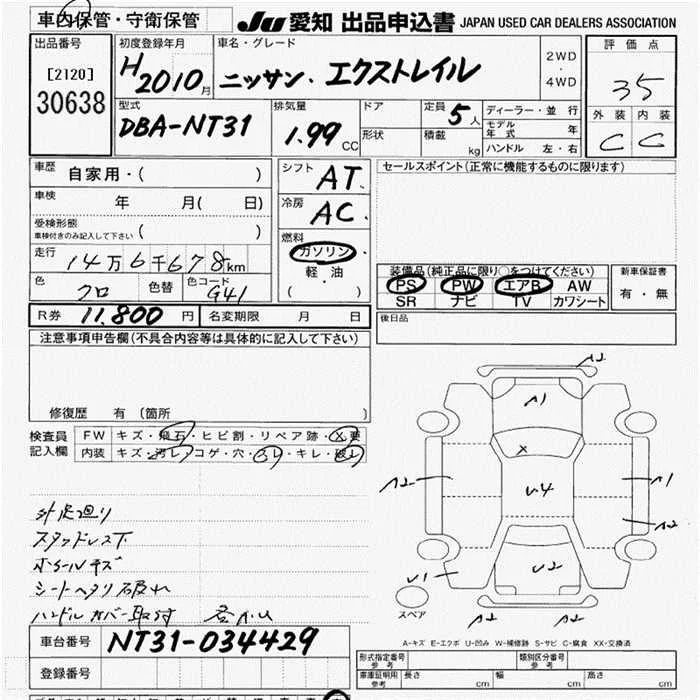 車内保管・守衛保管
JU 愛知 出品申込書 JAPAN USED CAR DEALERS ASSOCIATION
出品番号
[2120]
30638
初度登録年月
H2010月
車名・グレード
ニッサン・エクストレイル
2WD
・
4WD
評価点
35
外装 内装
C C
型式
DBA-NT31
排気量
1.99 CC
ドア
形状
定員 5人
積載 kg
ディーラー・並行
モデル年式 年
ハンドル 左・右
車歴 自家用・( )
車検 年 月( 日)
受検形態
車検付きのみ記入して下さい ( )
走行 14万6千678km
色 クロ 色替 色コード G41
シフト AT
冷房 AC
燃料
ガソリン
軽油
( )
セールスポイント(正常に機能するものに限ります)
装備品(純正品に限り○をつけてください)
PS PW エアB AW
SR ナビ TV カワシート
新車保証書
有・無
R券 11.800 円 名変期限 月 日
後日品
注意事項申告欄(不具合内容等は具体的に記入して下さい)
修復歴 有(箇所 )
検査員
記入欄
FW キズ・飛石・ヒビ割・リペア跡・X要
内装 キズ・汚レ・コゲ・穴・スレ・キレ・破レ
外廻り
スタッドレス下
ホイールキズ
シートヘタリ破れ
ハンドルカバー取付
A2
A1
X
U4
A2
A1
A2
U1
U2
A2
A2
スペア
A-キズ E-エクボ U-凹み W-補修跡 S-サビ C-腐食 XX-交換済
車台番号 NT31-034429
登録番号
形式指定番号 参考
類別区分番号 参考
車庫証明用 参考 長さ cm 幅 cm 高さ cm